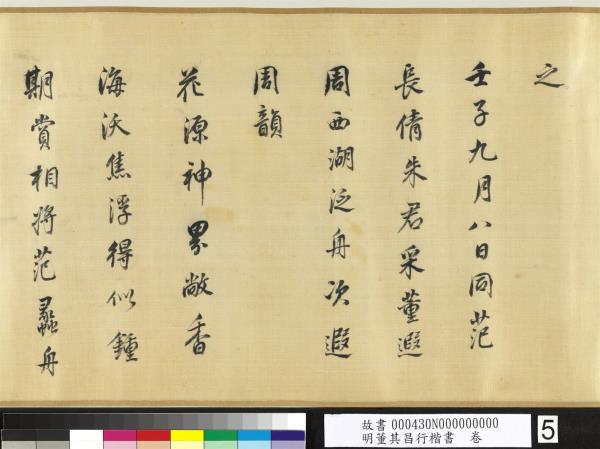 之
壬子九月八日同范
長倩朱君采董遐
周西湖泛舟次遐
周韻
花源神界敞香
海沃焦浮得似鍾
期賞相將范蠡舟
故書 000430N000000000
明董其昌行楷書 卷
5